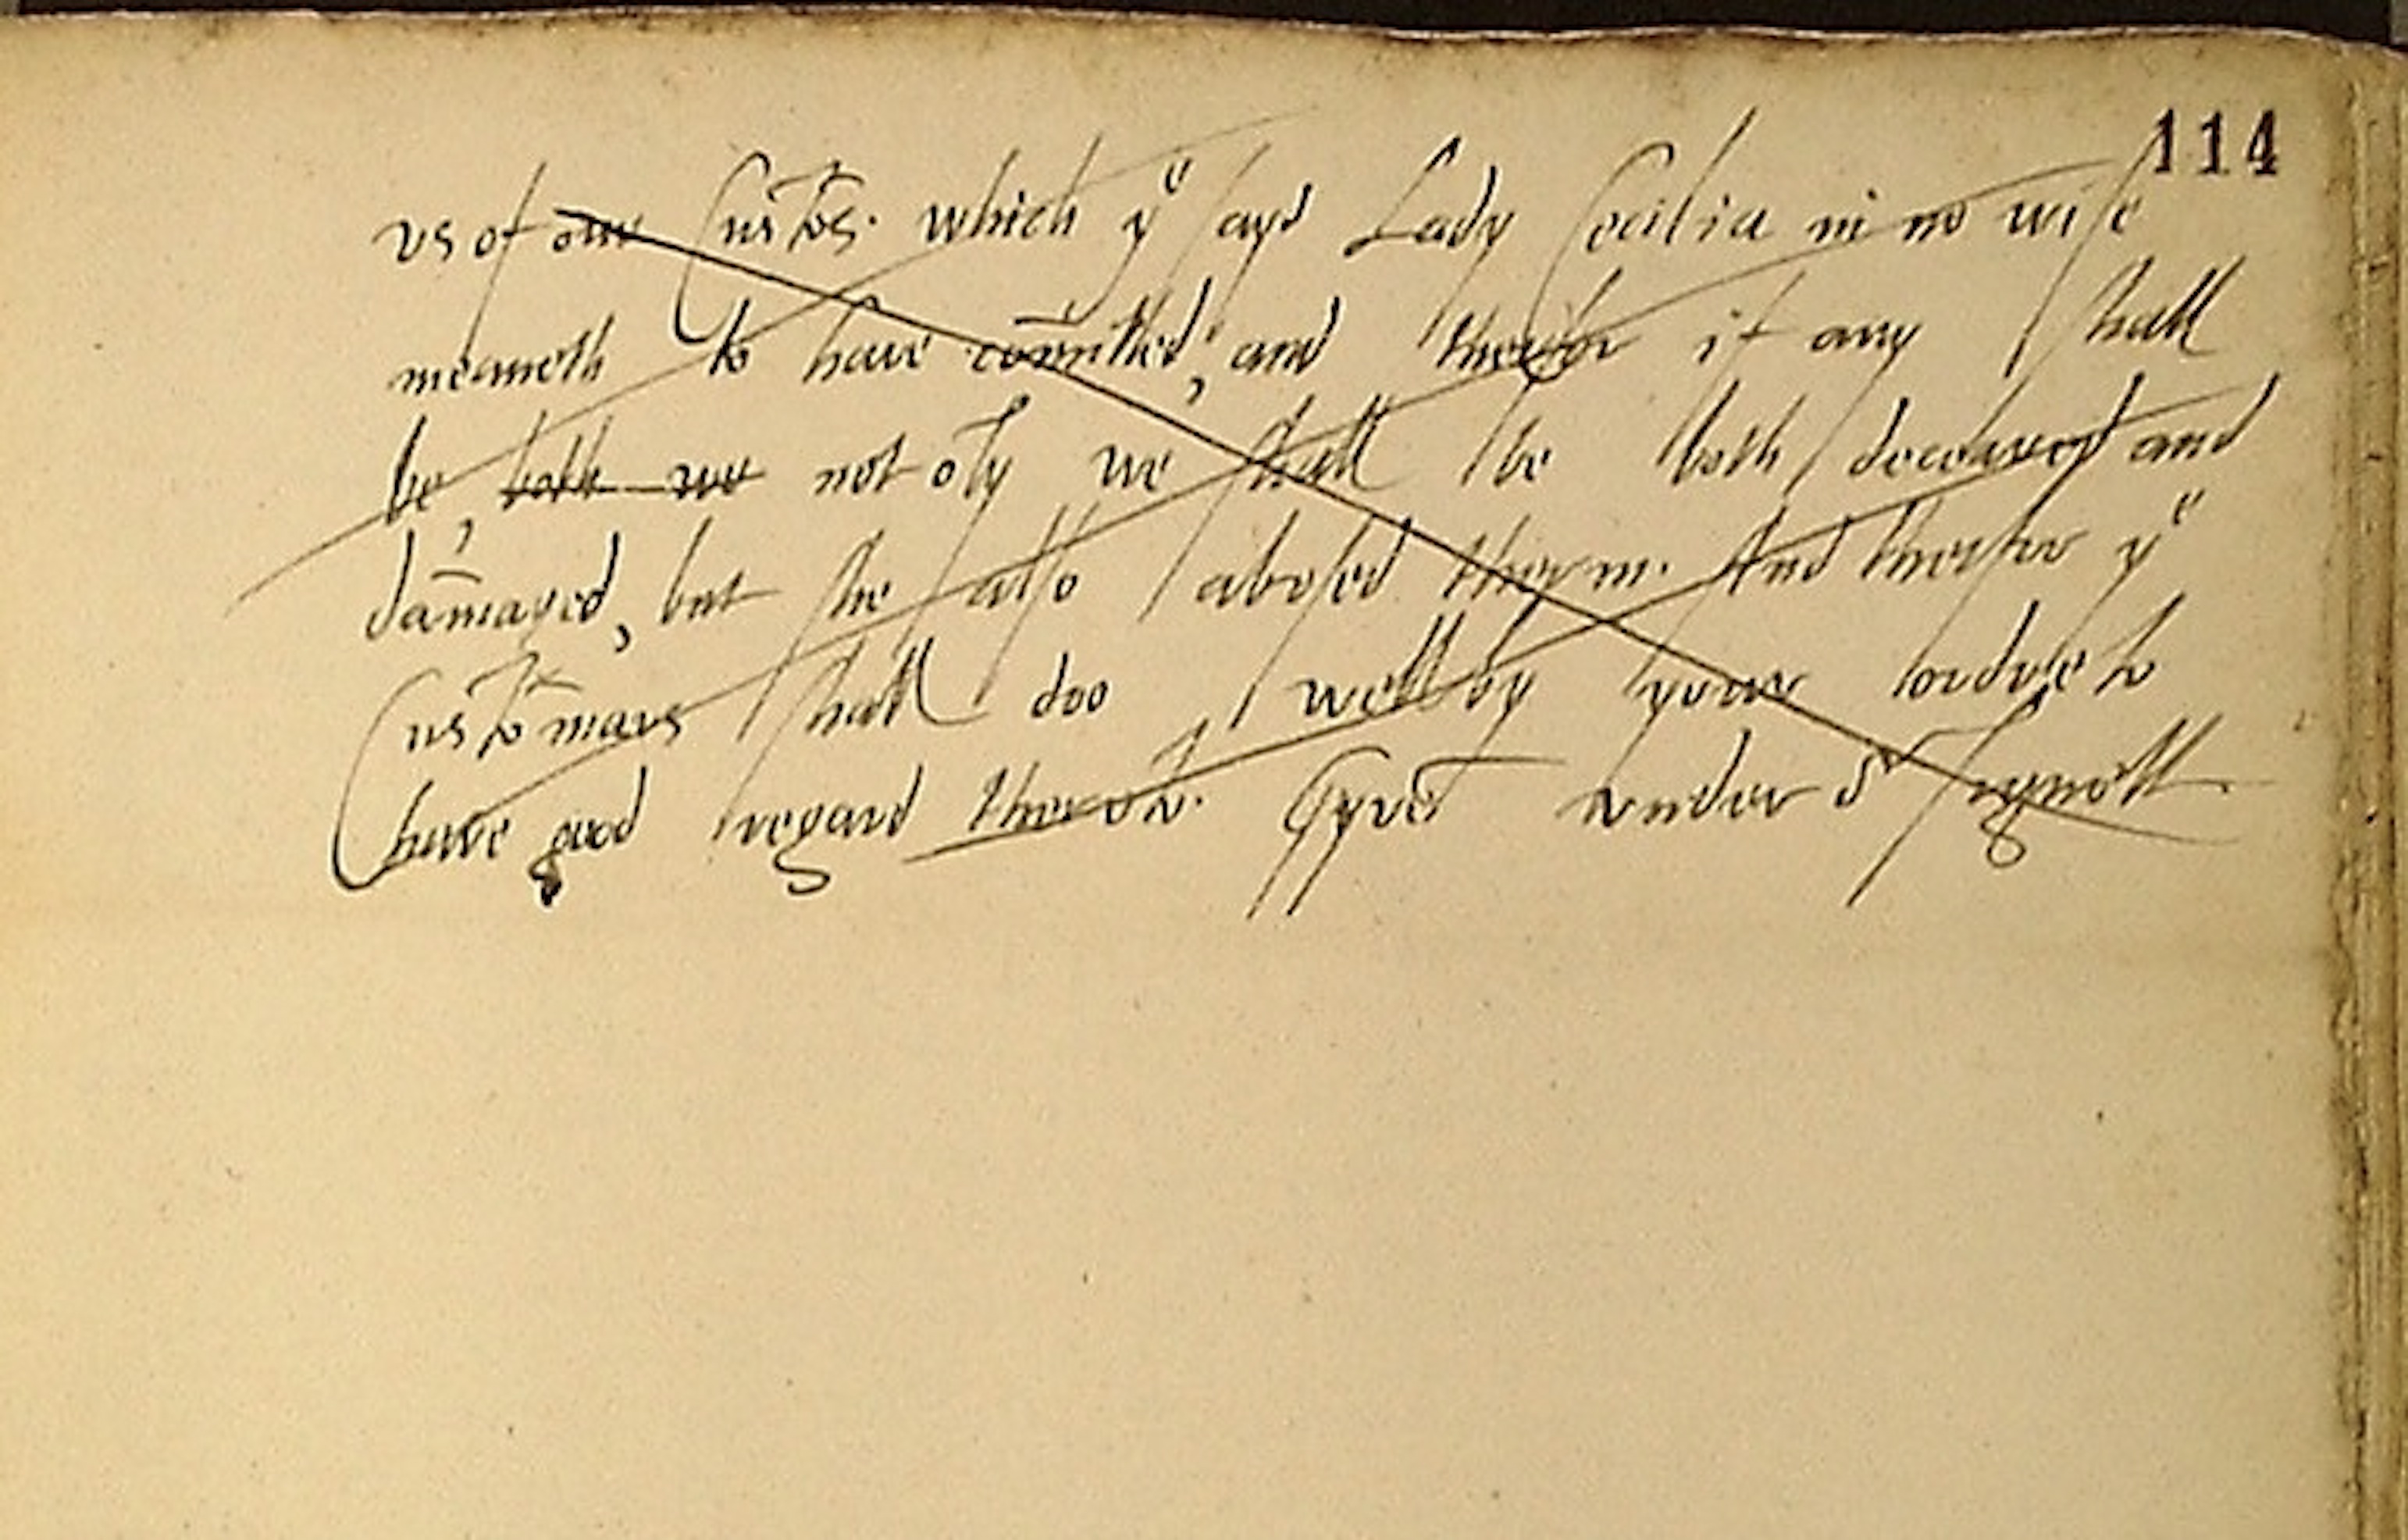 114
vs of our Custõs. which yͤ sayd Lady Cecilia in no wise
meaneth to have com̃itted, and therfor if any shall
be, both we not oly we shall be both deceaved and
dam̃aged, but she also abosed theyrin. And therfor yͤ
Custom̃ars shall doo well by your ordre to
have good regard theron̄. Gyveñ under oͬ Sygnett